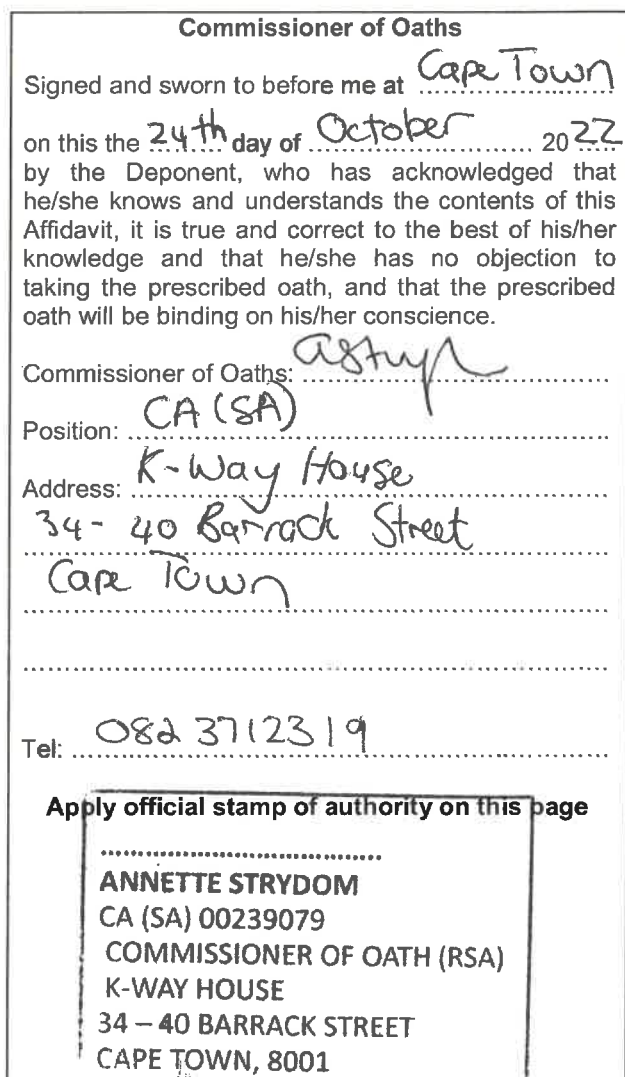 Commissioner of Oaths
Signed and sworn to before me at Cape Town
on this the 24th day of October 2022
by the Deponent, who has acknowledged that
he/she knows and understands the contents of this
Affidavit, it is true and correct to the best of his/her
knowledge and that he/she has no objection to
taking the prescribed oath, and that the prescribed
oath will be binding on his/her conscience.
Commissioner of Oaths:
Position: CA (SA)
Address: K-Way House
34 - 40 Barrack Street
Cape Town
Tel: 082 3712319
Apply official stamp of authority on this page
ANNETTE STRYDOM
CA (SA) 00239079
COMMISSIONER OF OATH (RSA)
K-WAY HOUSE
34 – 40 BARRACK STREET
CAPE TOWN, 8001